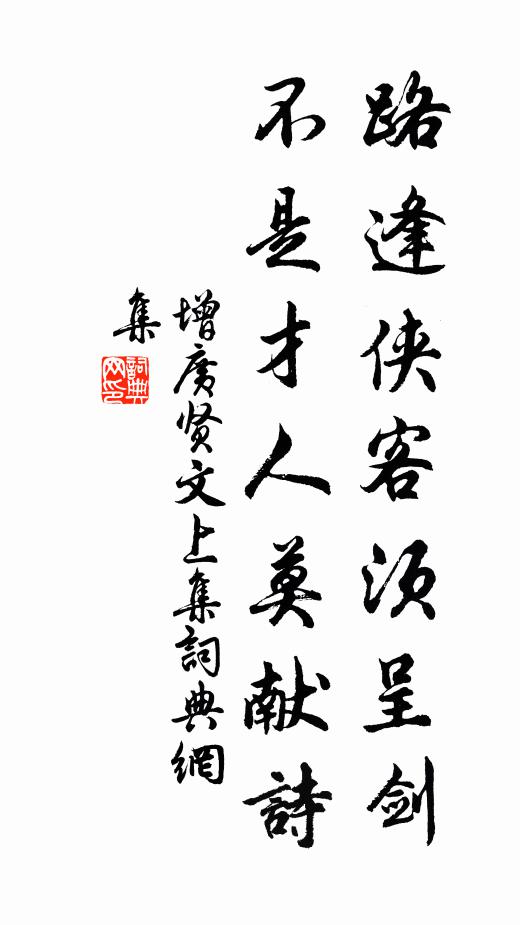 路逢侠客須呈剑
不是才人莫献詩
增廣贤文上集詞典網
集
詞典网印